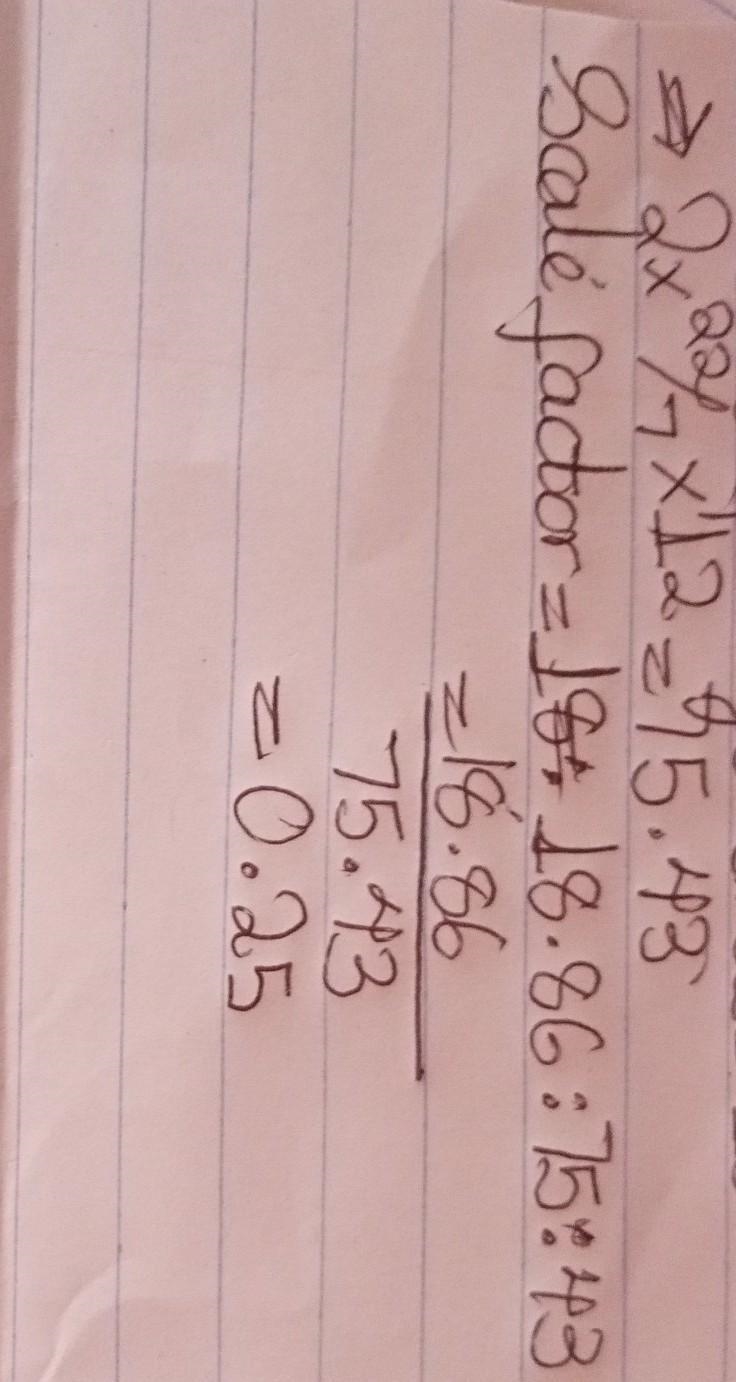 ⇒ 2x 22/7 x 12 = 75.43
Scale factor = 18.86 : 75.43
= 18.86
75.43
= 0.25